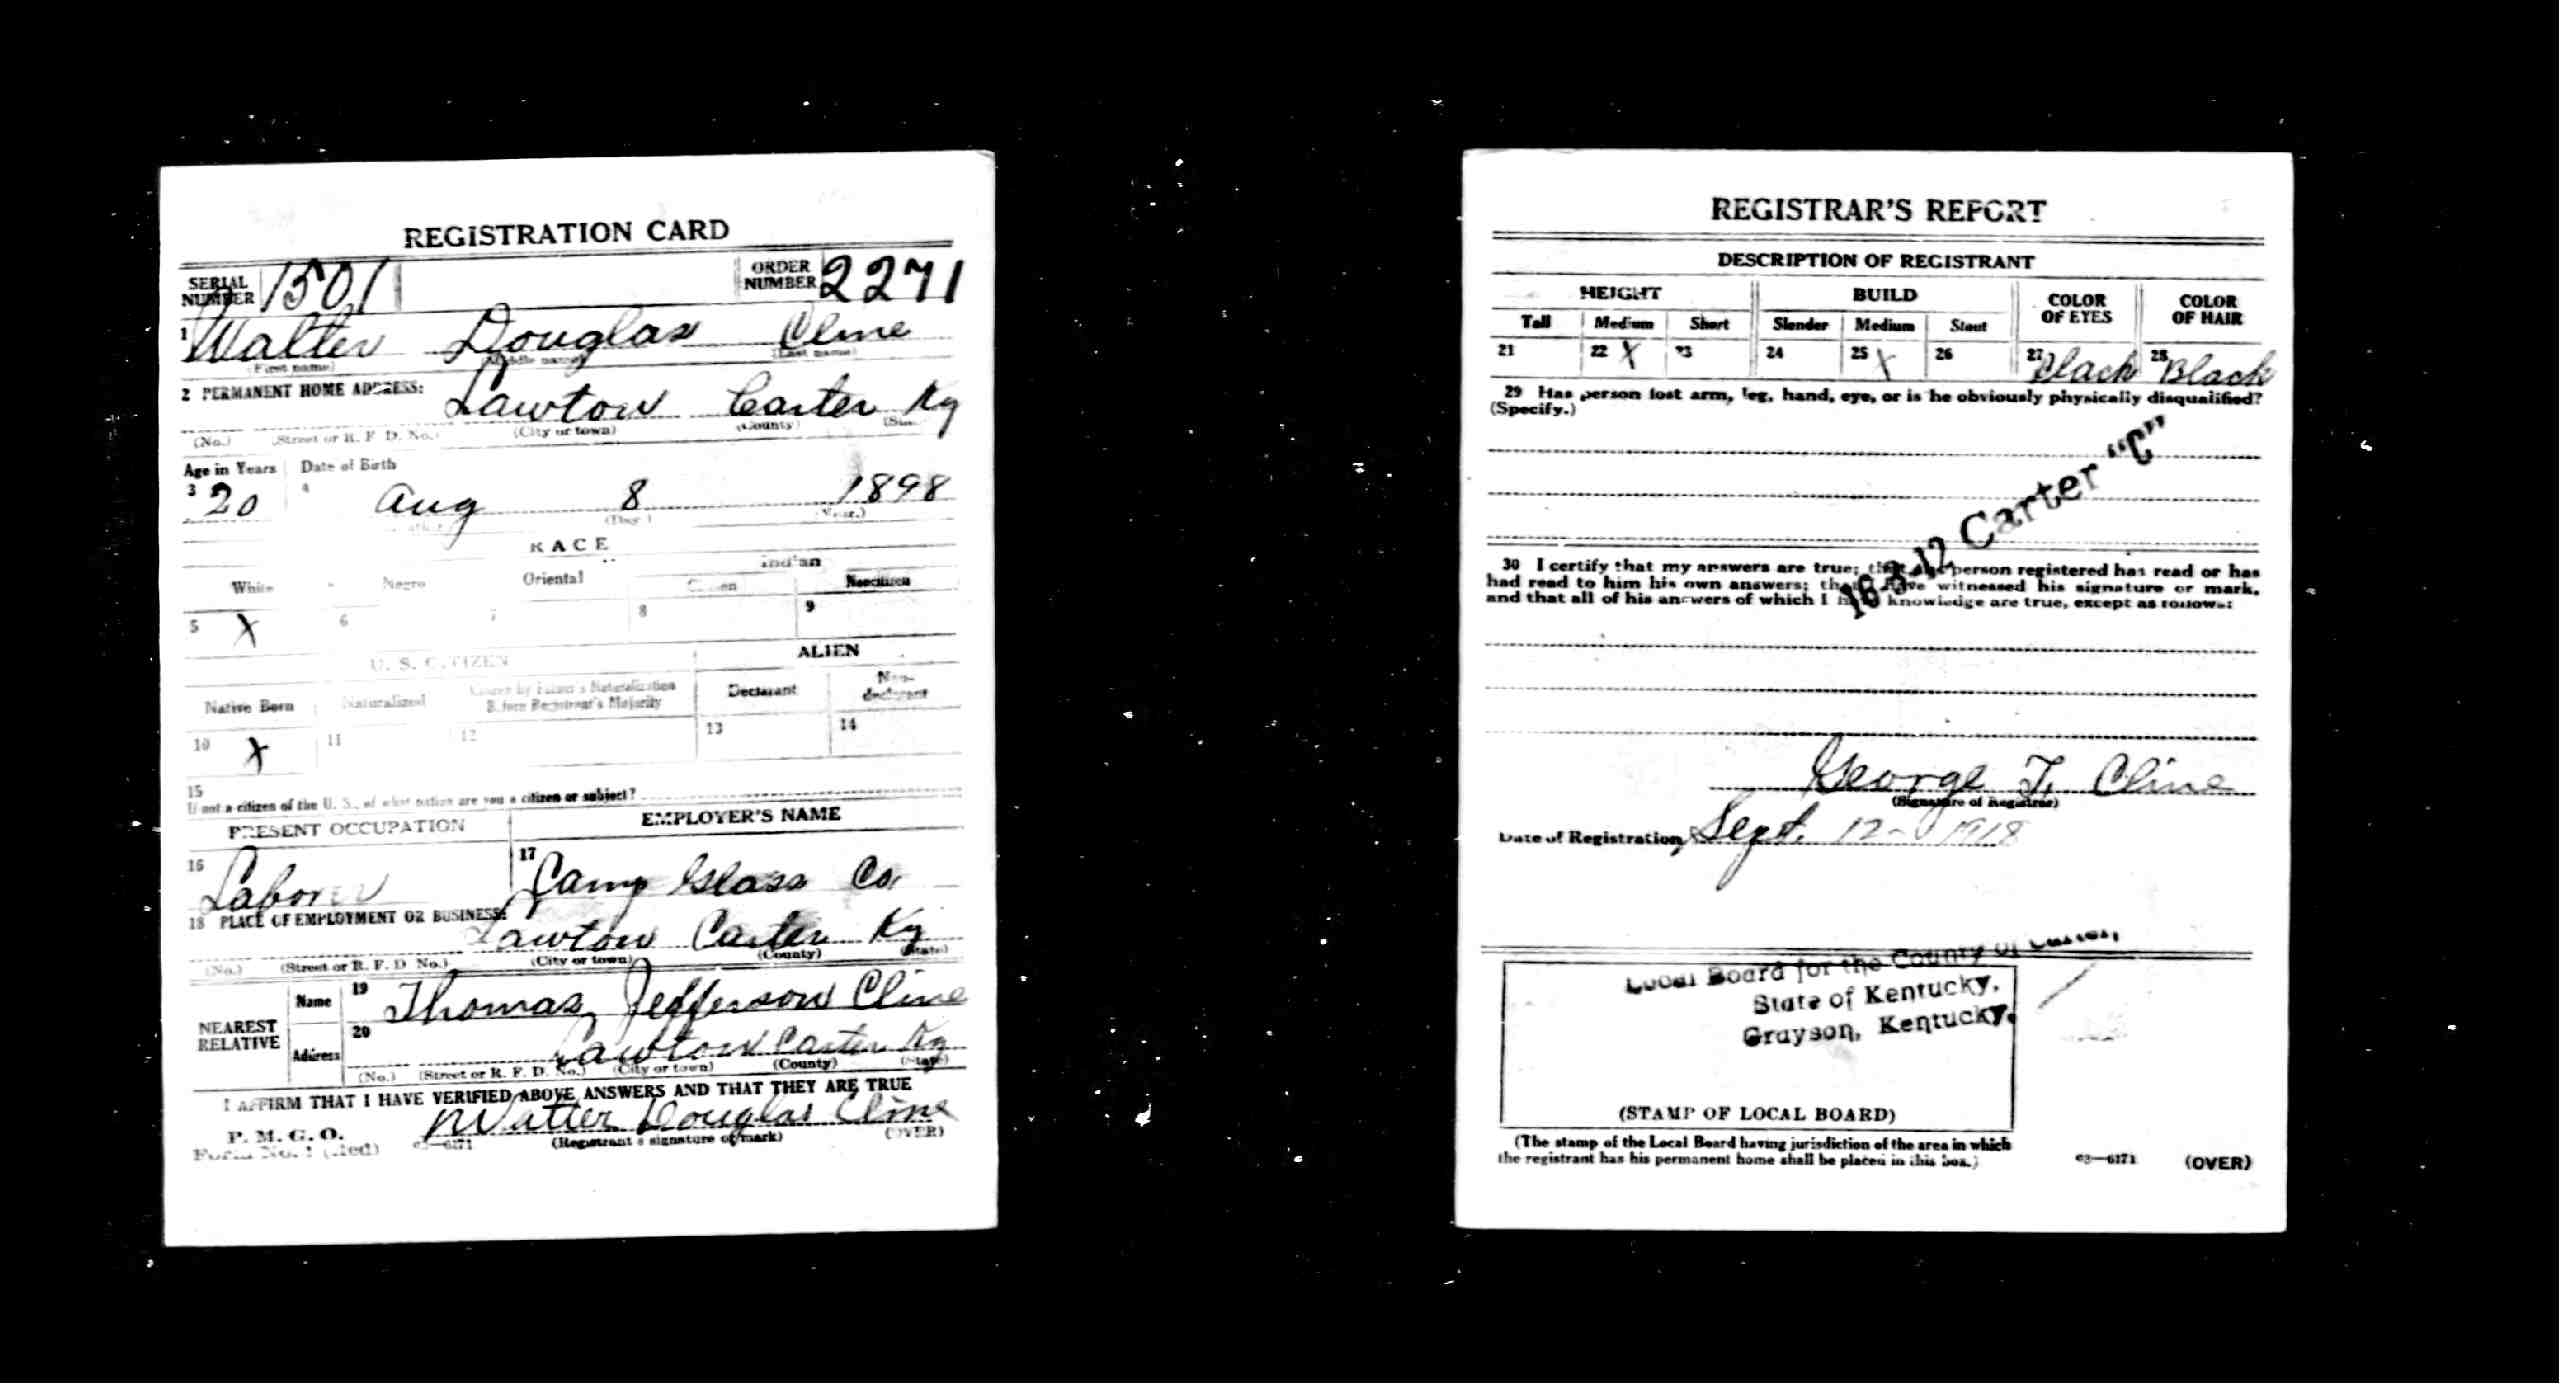 REGISTRATION CARD
SERIAL NUMBER 1501 ORDER NUMBER 2271
1 Walter Douglas Cline
(First name) (Middle name) (Last name)
2 PERMANENT HOME ADDRESS: Lawton Carter Ky
(No.) (Street or R. F. D. No.) (City or town) (County)
Age in Years Date of Birth
3 20 4 Aug 8 1898
(Day) (Year)
RACE
White Negro Oriental Indian
Citizen Noncitizen
5 X 6 7 8 9
U. S. CITIZEN ALIEN
Native Born Naturalized Citizen by Father's Naturalization Before Registrant's Majority Declarant Non-declarant
10 X 11 12 13 14
15
If not a citizen of the U. S., of what nation are you a citizen or subject?
PRESENT OCCUPATION EMPLOYER'S NAME
16 Laborer 17 Camp Glass Co.
18 PLACE OF EMPLOYMENT OR BUSINESS:
Lawton Carter Ky
(No.) (Street or R. F. D. No.) (City or town) (County) (State)
NEAREST RELATIVE
Name 19 Thomas Jefferson Cline
Address 20 Lawton Carter Ky
(No.) (Street or R. F. D. No.) (City or town) (County) (State)
I AFFIRM THAT I HAVE VERIFIED ABOVE ANSWERS AND THAT THEY ARE TRUE
P. M. G. O. Walter Douglas Cline
Form No. 1 (Red) 03—6171 (Registrant's signature or mark) (OVER)
REGISTRAR'S REPORT
DESCRIPTION OF REGISTRANT
HEIGHT BUILD COLOR OF EYES COLOR OF HAIR
Tall Medium Short Slender Medium Stout
21 22 X 23 24 25 X 26 27 Black 28 Black
29 Has person lost arm, leg, hand, eye, or is he obviously physically disqualified?
(Specify.)
16-3-12 Carter "C"
30 I certify that my answers are true; that the person registered has read or has
had read to him his own answers; that I have witnessed his signature or mark,
and that all of his answers of which I have knowledge are true, except as follows:
George T. Cline
(Signature of Registrar)
Date of Registration Sept. 12- 1918
Local Board for the County of Carter,
State of Kentucky,
Grayson, Kentucky.
(STAMP OF LOCAL BOARD)
(The stamp of the Local Board having jurisdiction of the area in which
the registrant has his permanent home shall be placed in this box.)
03—6171 (OVER)